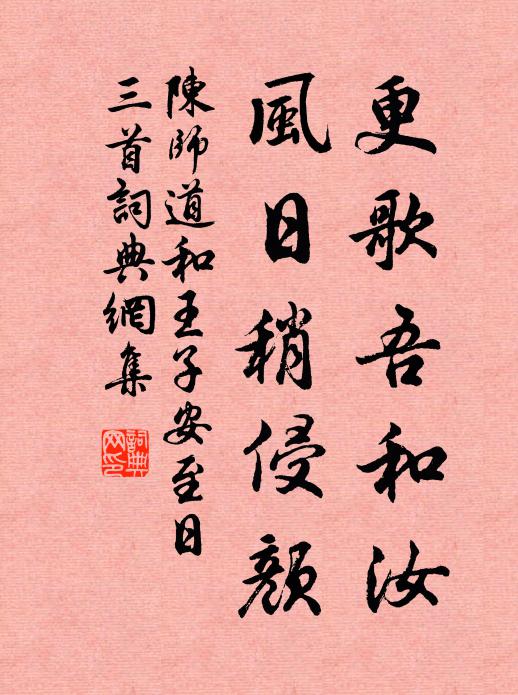 更歌吾和汝
風日稍侵顏
陳師道和王子安至日
三首詞典網集
詞典網印